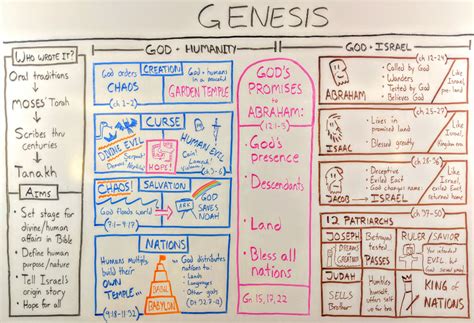 GENESIS
WHO WROTE IT?
Oral traditions
MOSES Torah
Scribes thru
centuries
Tanakh
Aims
• Set stage for
divine/human
affair in Bible
• Define human
purpose/nature
• Tell Israel's
origin story
• Hope for all
GOD + HUMANITY
CREATION
God orders
CHAOS
(ch 1-2)
God + humans
in a peaceful
GARDEN TEMPLE
CURSE
DIVINE EVIL
Serpent
HOPE!
HUMAN EVIL
Cain
Lamech
(ch 3-6)
CHAOS!
SALVATION
God floods world
(7:1-9:17)
ARK
GOD
SAVES
NOAH
NATIONS
Humans multiply,
build their
OWN
TEMPLE...
(9:18-11:32)
BABYLON
God distributes
nations to:
• Lands
• Languages
• Other gods
GOD'S
PROMISES
to
ABRAHAM:
(12:1-3)
• God's
presence
• Descendants
• Land
• Bless all
nations
Gn. 15, 17, 22
GOD + ISRAEL
(ch 12-24)
ABRAHAM
• Called by God
• Wanders
• Tested by God
• Believes God
Like
Israel
pre-land
(ch 25-27)
ISAAC
• Lives in
promised land
• Blessed greatly
Like
Israel
in land
JACOB → ISRAEL
• Deceptive
• Exiled East
• God changes name
Like
Israel,
exiled,
returned
home
12 PATRIARCHS
(ch 37-50)
JOSEPH
DREAMS
GREATNESS
Betrayed,
tested
PASSES
RULER/SAVIOR
"You intended
EVIL, but
God used
JUDAH
SELLS
Brother
Humbles
himself,
offers self
for them
KING of
NATIONS